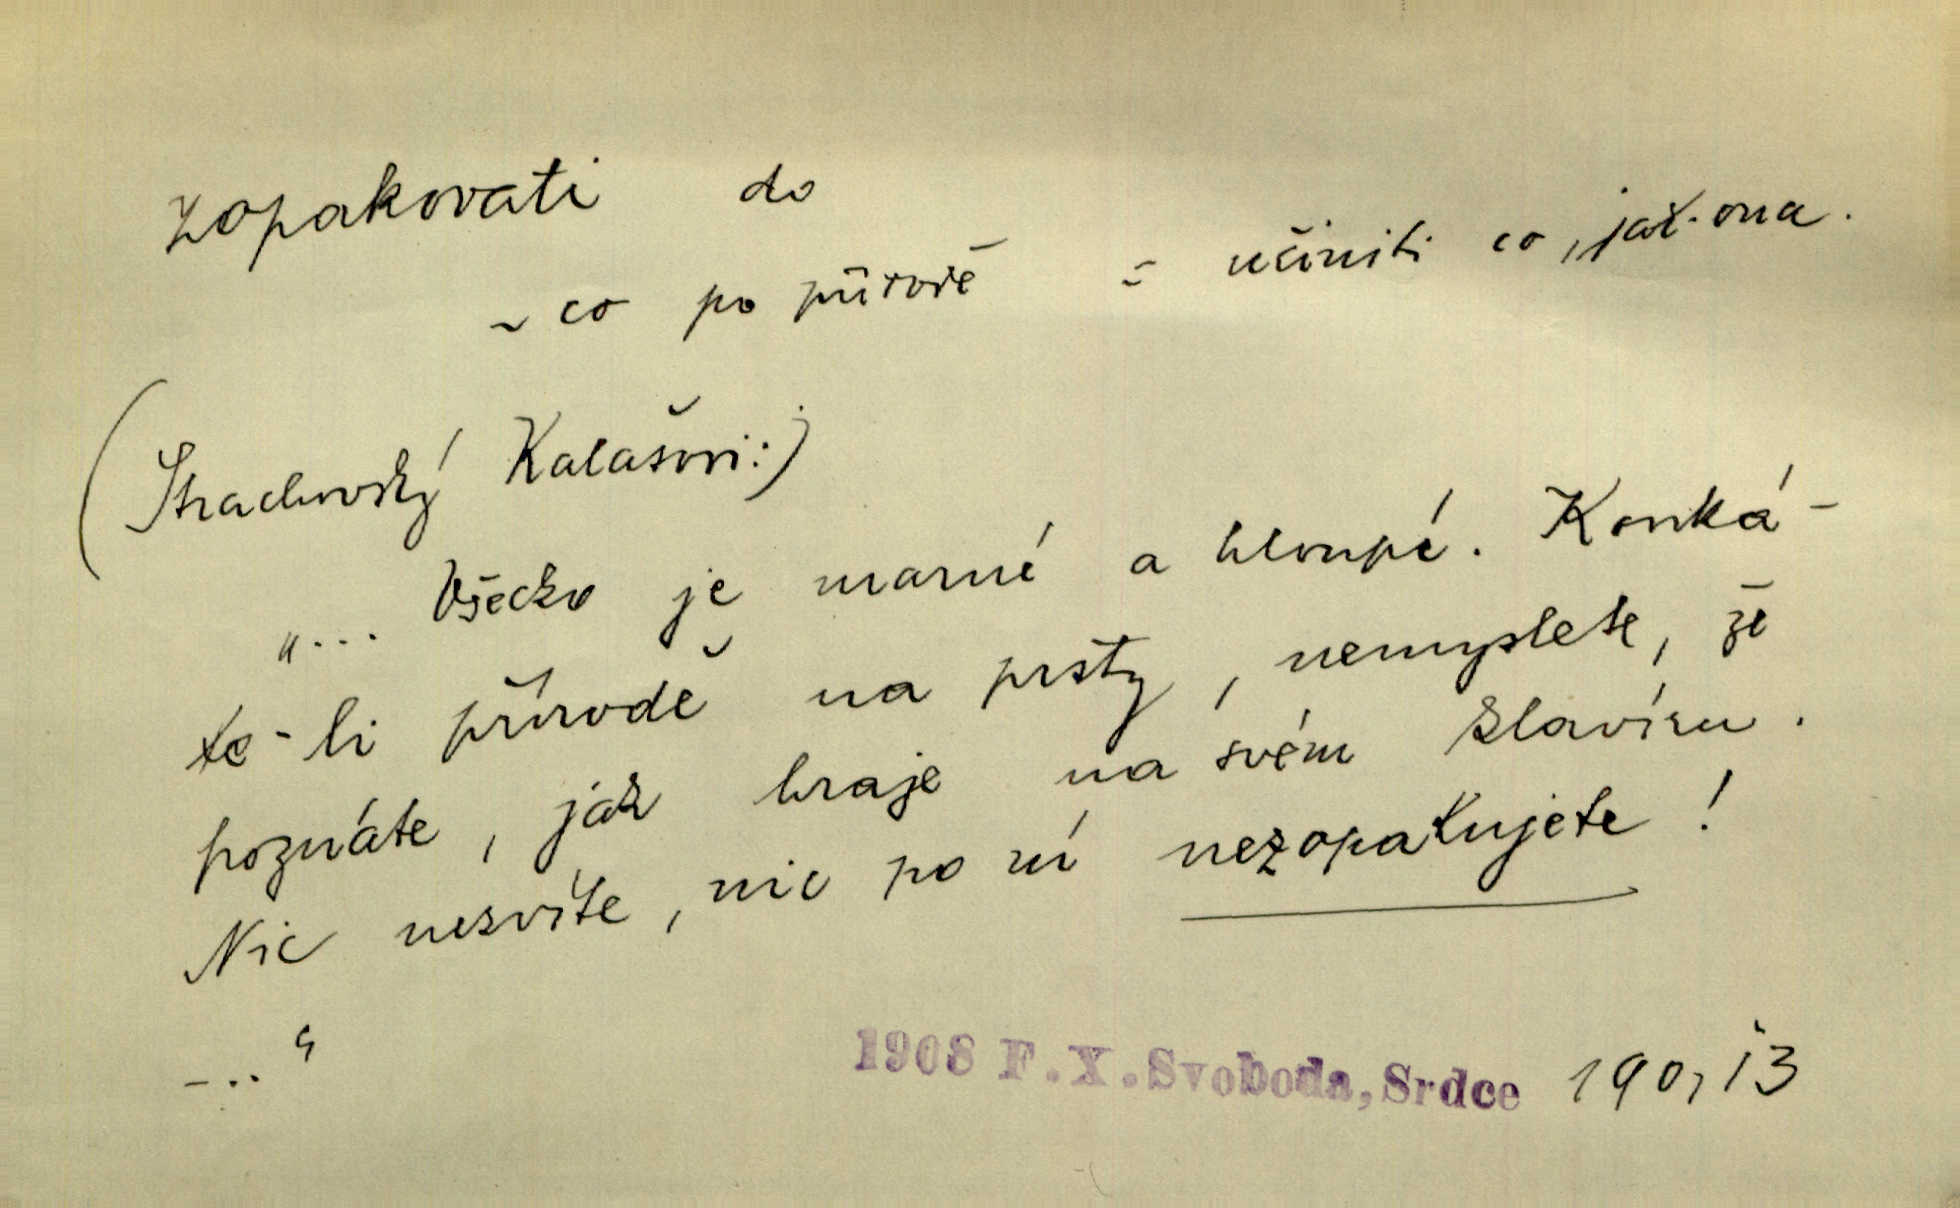 zopakovati do
~ co po přírodě = učiniti co, jak ona.
(Strachovský Kalašovi:)
„... Všecko je marné a hloupé. Kouká-
te-li přírodě na prsty, nemyslete, že
poznáte, jak hraje na svém klavíru.
Nic nezvíte, nic po ní nezopakujete!
-.. "
1908 F. X. Svoboda, Srdce 190, 13